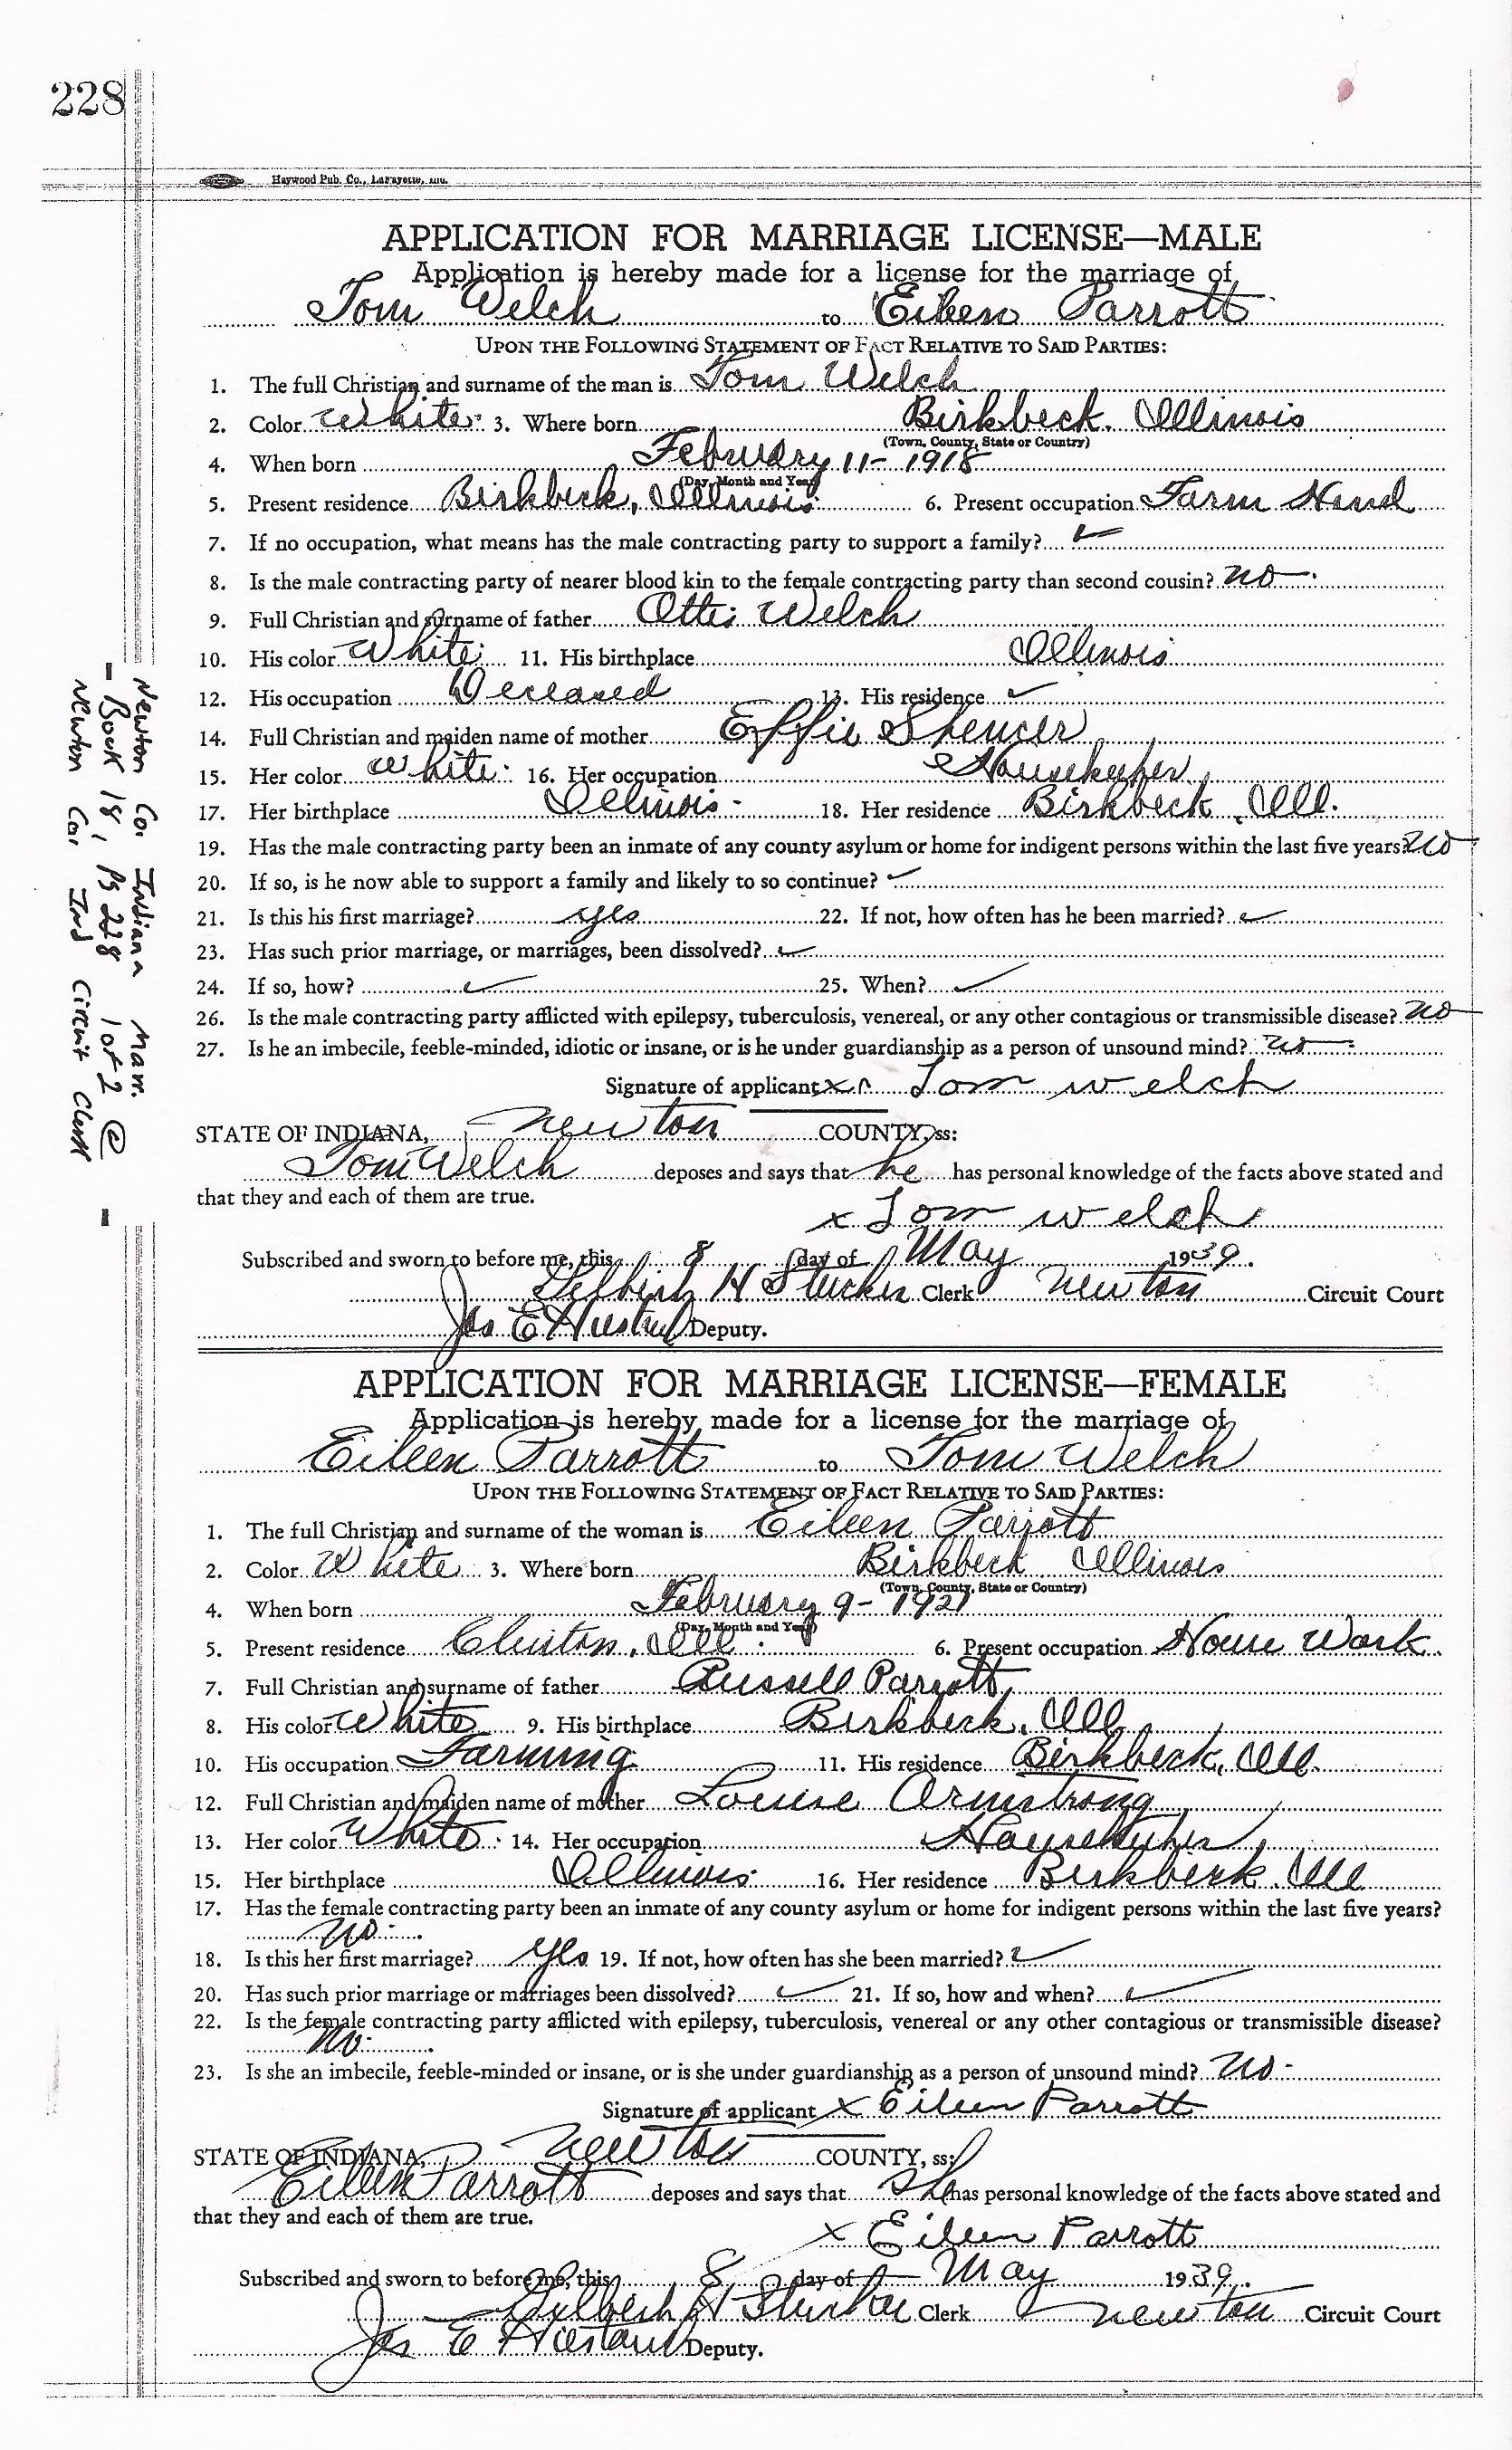 228
Haywood Pub. Co., LaFayette, Ind.
APPLICATION FOR MARRIAGE LICENSE—MALE
Application is hereby made for a license for the marriage of
Tom Welch to Eileen Parrott
UPON THE FOLLOWING STATEMENT OF FACT RELATIVE TO SAID PARTIES:
1. The full Christian and surname of the man is Tom Welch
2. Color White 3. Where born Birkbeck, Illinois
(Town, County, State or Country)
4. When born February 11- 1918
(Day, Month and Year)
5. Present residence Birkbeck, Illinois 6. Present occupation Farm Hand
7. If no occupation, what means has the male contracting party to support a family? ✓
8. Is the male contracting party of nearer blood kin to the female contracting party than second cousin? no
9. Full Christian and surname of father Ottis Welch
10. His color White 11. His birthplace Illinois
12. His occupation Deceased 13. His residence ✓
14. Full Christian and maiden name of mother Effie Spencer
15. Her color White 16. Her occupation Housekeeper
17. Her birthplace Illinois 18. Her residence Birkbeck, Ill.
19. Has the male contracting party been an inmate of any county asylum or home for indigent persons within the last five years? no
20. If so, is he now able to support a family and likely to so continue? ✓
21. Is this his first marriage? yes 22. If not, how often has he been married? ✓
23. Has such prior marriage, or marriages, been dissolved? ✓
24. If so, how? ✓ 25. When? ✓
26. Is the male contracting party afflicted with epilepsy, tuberculosis, venereal, or any other contagious or transmissible disease? no
27. Is he an imbecile, feeble-minded, idiotic or insane, or is he under guardianship as a person of unsound mind? no
Signature of applicant x Tom welch
STATE OF INDIANA, Newton COUNTY, ss:
Tom Welch deposes and says that he has personal knowledge of the facts above stated and
that they and each of them are true.
x Tom welch
Subscribed and sworn to before me, this 8 day of May 1939.
H Clerk Newton Circuit Court
Jas E Deputy.
APPLICATION FOR MARRIAGE LICENSE—FEMALE
Application is hereby made for a license for the marriage of
Eileen Parrott to Tom Welch
UPON THE FOLLOWING STATEMENT OF FACT RELATIVE TO SAID PARTIES:
1. The full Christian and surname of the woman is Eileen Parrott
2. Color White 3. Where born Birkbeck Illinois
(Town, County, State or Country)
4. When born February 9- 1921
(Day, Month and Year)
5. Present residence Clinton, Ill. 6. Present occupation House Work.
7. Full Christian and surname of father Russell Parrott
8. His color White 9. His birthplace Birkbeck, Ill
10. His occupation Farming 11. His residence Birkbeck, Ill.
12. Full Christian and maiden name of mother Louise Armstrong
13. Her color White 14. Her occupation Housekeeper
15. Her birthplace Illinois 16. Her residence Birkbeck, Ill
17. Has the female contracting party been an inmate of any county asylum or home for indigent persons within the last five years?
no
18. Is this her first marriage? yes 19. If not, how often has she been married? ✓
20. Has such prior marriage or marriages been dissolved? ✓ 21. If so, how and when? ✓
22. Is the female contracting party afflicted with epilepsy, tuberculosis, venereal or any other contagious or transmissible disease?
no
23. Is she an imbecile, feeble-minded or insane, or is she under guardianship as a person of unsound mind? no
Signature of applicant x Eileen Parrott
STATE OF INDIANA, Newton COUNTY, ss:
Eileen Parrott deposes and says that she has personal knowledge of the facts above stated and
that they and each of them are true.
x Eileen Parrott
Subscribed and sworn to before me, this 8 day of May 1939.
H Clerk Newton Circuit Court
Jas E Deputy.
Newton Co. Indiana Marr.
- Book 18, Pg 228 1 of 2 @ -
Newton Co. Ind Circuit Clerk